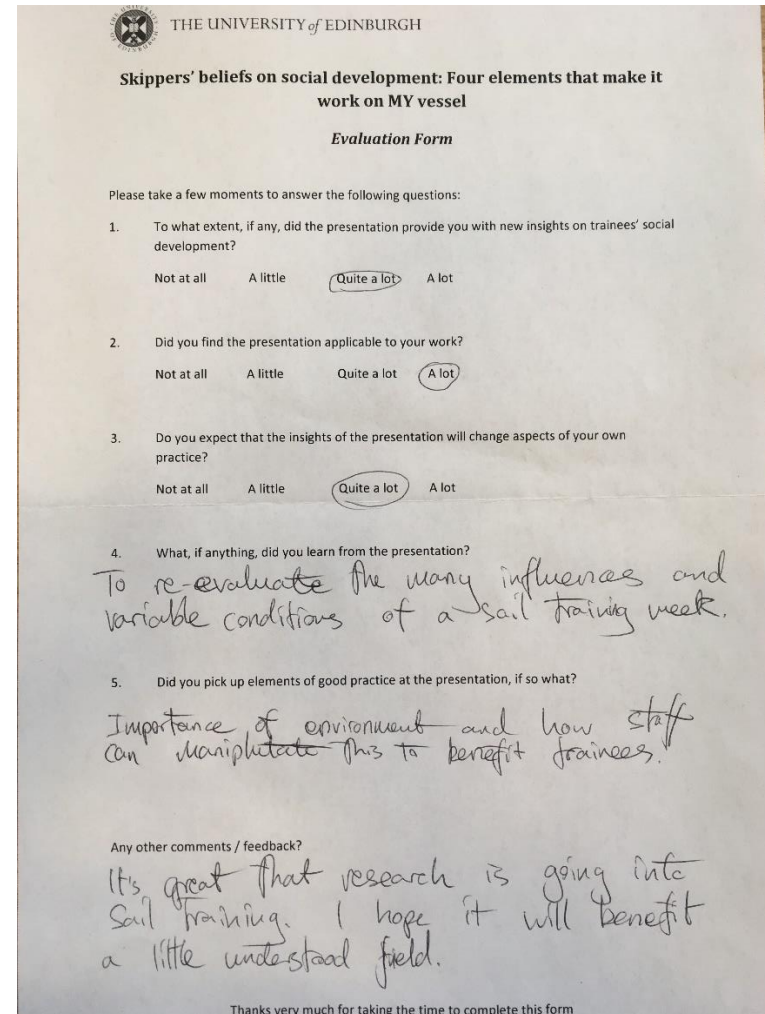 THE UNIVERSITY of EDINBURGH
Skippers' beliefs on social development: Four elements that make it
work on MY vessel
Evaluation Form
Please take a few moments to answer the following questions:
1. To what extent, if any, did the presentation provide you with new insights on trainees' social
development?
Not at all A little Quite a lot A lot
2. Did you find the presentation applicable to your work?
Not at all A little Quite a lot A lot
3. Do you expect that the insights of the presentation will change aspects of your own
practice?
Not at all A little Quite a lot A lot
4. What, if anything, did you learn from the presentation?
To re-evaluate the many influences and
variable conditions of a sail training week.
5. Did you pick up elements of good practice at the presentation, if so what?
Importance of environment and how staff
can maniphutate this to benefit trainees.
Any other comments / feedback?
It's great that research is going into
Sail Training. I hope it will benefit
a little understood field.
Thanks very much for taking the time to complete this form